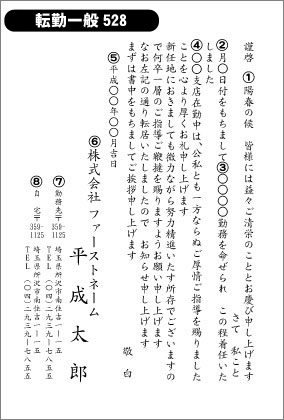 転勤一般 528
謹啓 ①陽春の候 皆様には益々ご清栄のこととお慶び申し上げます
さて 私こと
②月〇日付をもちまして③〇〇〇〇勤務を命ぜられ この程着任いた
しました
④〇〇支店在勤中は、公私とも一方ならぬご厚情ご指導を賜りました
ことを心より厚くお礼申し上げます
新任地におきましても微力ながら努力精進いたす所存でございますの
で何卒一層のご指導ご鞭撻を賜りますようお願い申し上げます
なお左記の通り転居いたしましたので お知らせ申し上げます
まずは書中をもちましてご挨拶申し上げます
敬白
⑤平成〇〇年〇〇月吉日
⑥株式会社 ファーストネーム
平成太郎
⑦勤務先〒359-1125 埼玉県所沢市南住吉一-一五
TEL (〇四)二九三九-七八五五
⑧自宅〒359-1125 埼玉県所沢市南住吉一-一五
TEL (〇四)二九三九-七八五五